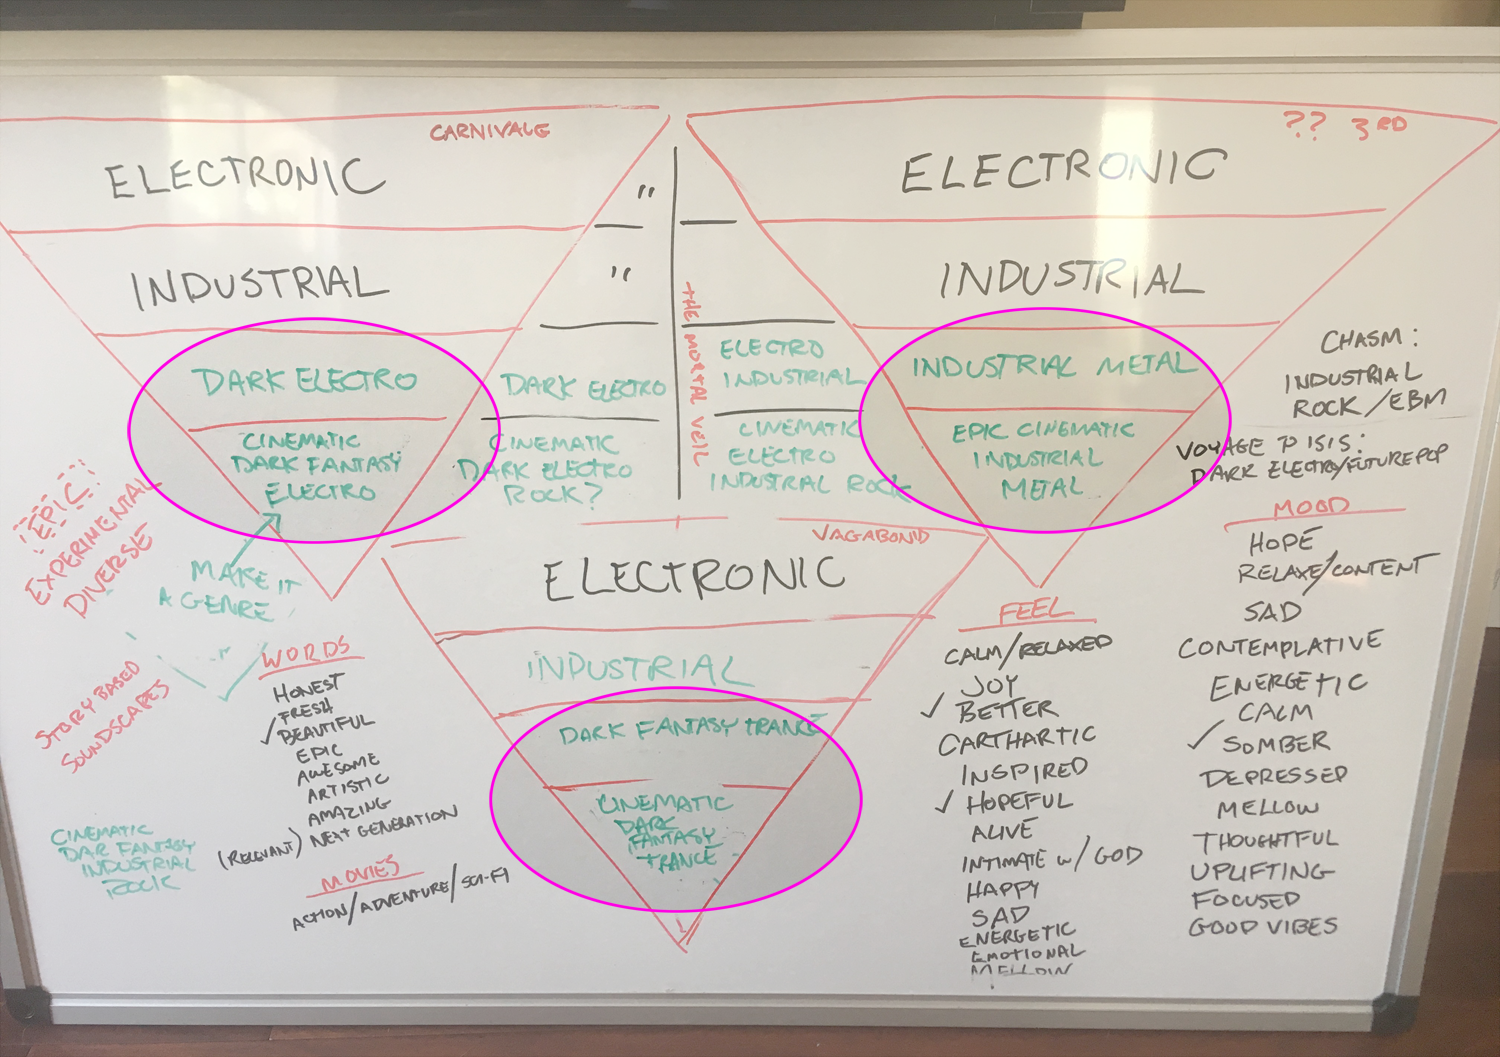 CARNIVALE
ELECTRONIC
"
INDUSTRIAL
"
DARK ELECTRO
CINEMATIC
DARK FANTASY
ELECTRO
DARK ELECTRO
CINEMATIC
DARK ELECTRO
ROCK?
THE MORTAL VEIL
ELECTRO
INDUSTRIAL
CINEMATIC
ELECTRO
INDUSTRIAL ROCK
?? 3RD
ELECTRONIC
INDUSTRIAL
INDUSTRIAL METAL
EPIC CINEMATIC
INDUSTRIAL
METAL
CHASM:
INDUSTRIAL
ROCK/EBM
VOYAGE TO ISIS:
DARK ELECTRO/FUTUREPOP
EPIC
EXPERIMENTAL
DIVERSE
MAKE IT
A GENRE
STORY BASED
SOUNDSCAPES
CINEMATIC
DAR FANTASY
INDUSTRIAL
ROCK
WORDS
HONEST
FRESH
✓ BEAUTIFUL
EPIC
AWESOME
ARTISTIC
AMAZING
(RELEVANT) NEXT GENERATION
MOVIES
ACTION/ADVENTURE/SCI-FI
VAGABOND
ELECTRONIC
INDUSTRIAL
DARK FANTASY TRANCE
CINEMATIC
DARK
FANTASY
TRANCE
FEEL
CALM/RELAXED
JOY
✓ BETTER
CARTHARTIC
INSPIRED
✓ HOPEFUL
ALIVE
INTIMATE W/ GOD
HAPPY
SAD
ENERGETIC
EMOTIONAL
MOOD
HOPE
RELAXE/CONTENT
SAD
CONTEMPLATIVE
ENERGETIC
CALM
✓ SOMBER
DEPRESSED
MELLOW
THOUGHTFUL
UPLIFTING
FOCUSED
GOOD VIBES